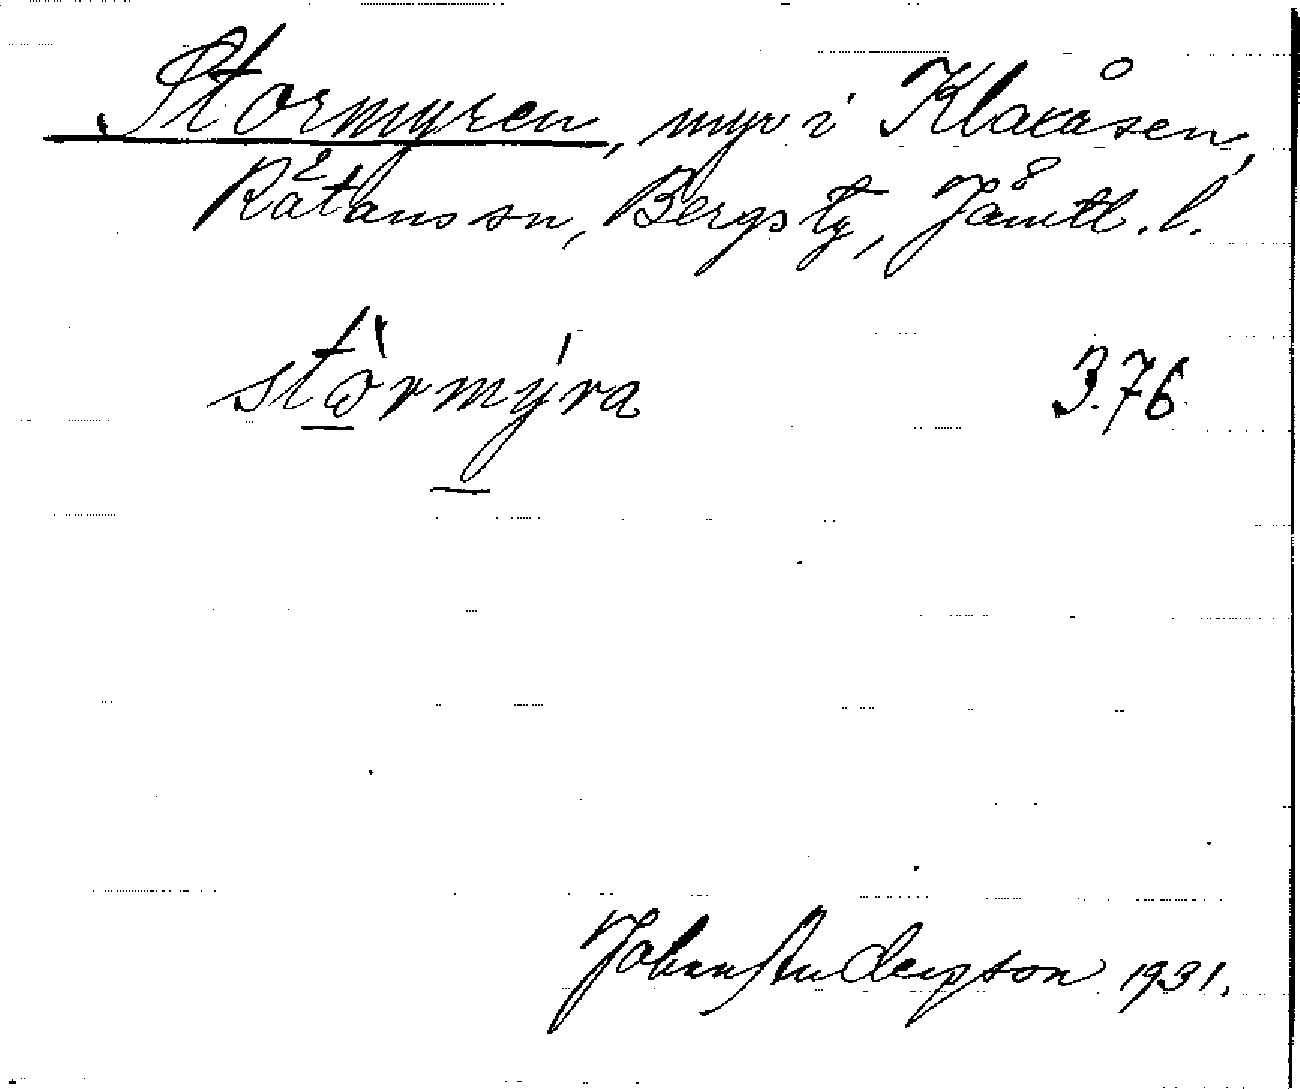 Stormyren, myr i Klaxåsen,
Rätans sn, Bergs tg, Jämtl. l.
stòrmýra 3.76
Johan Anderpson 1931.